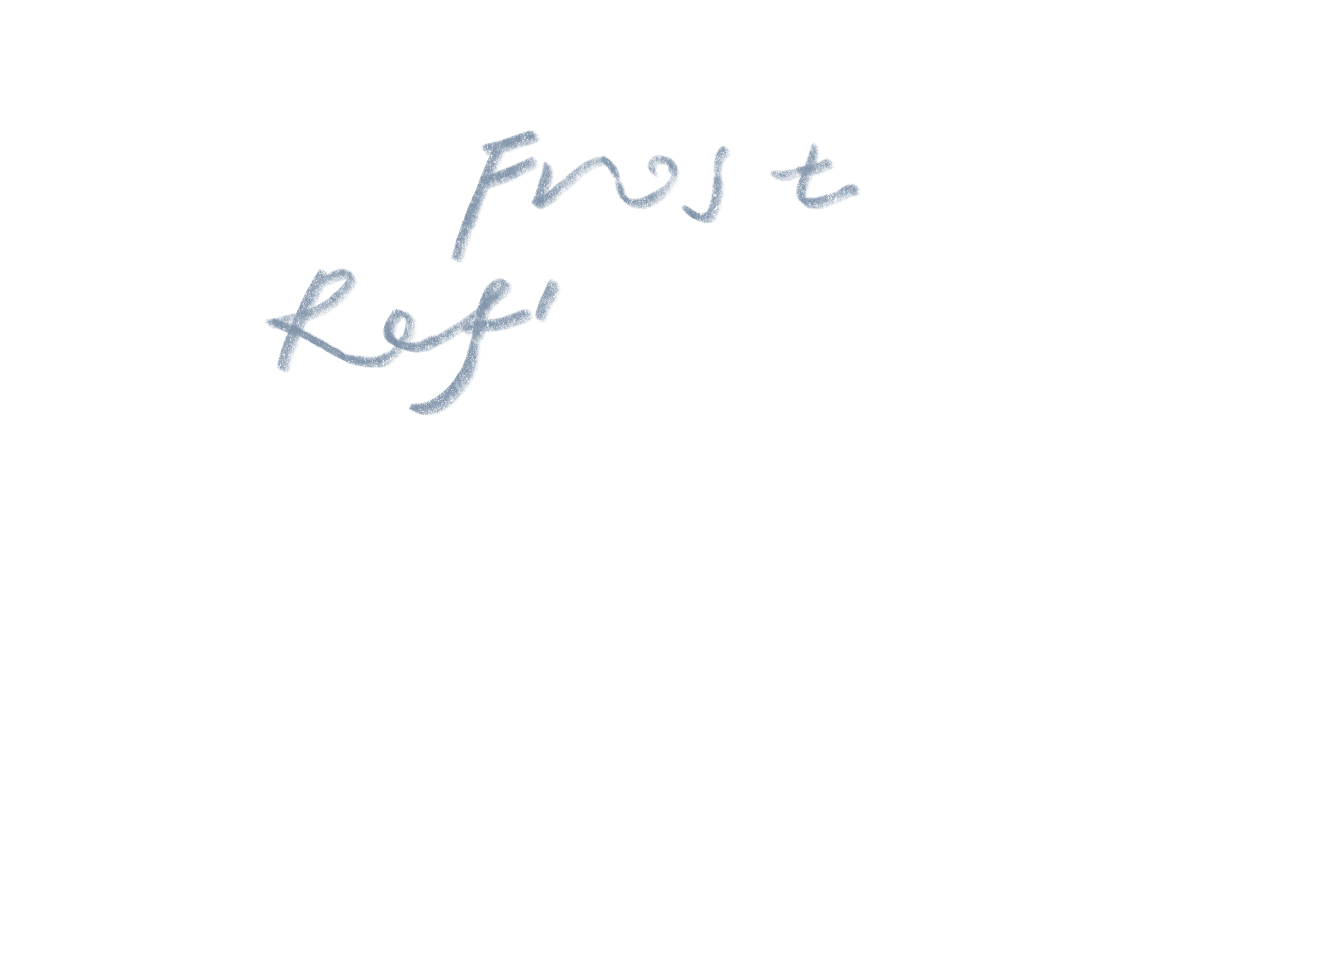 Frost
Refi